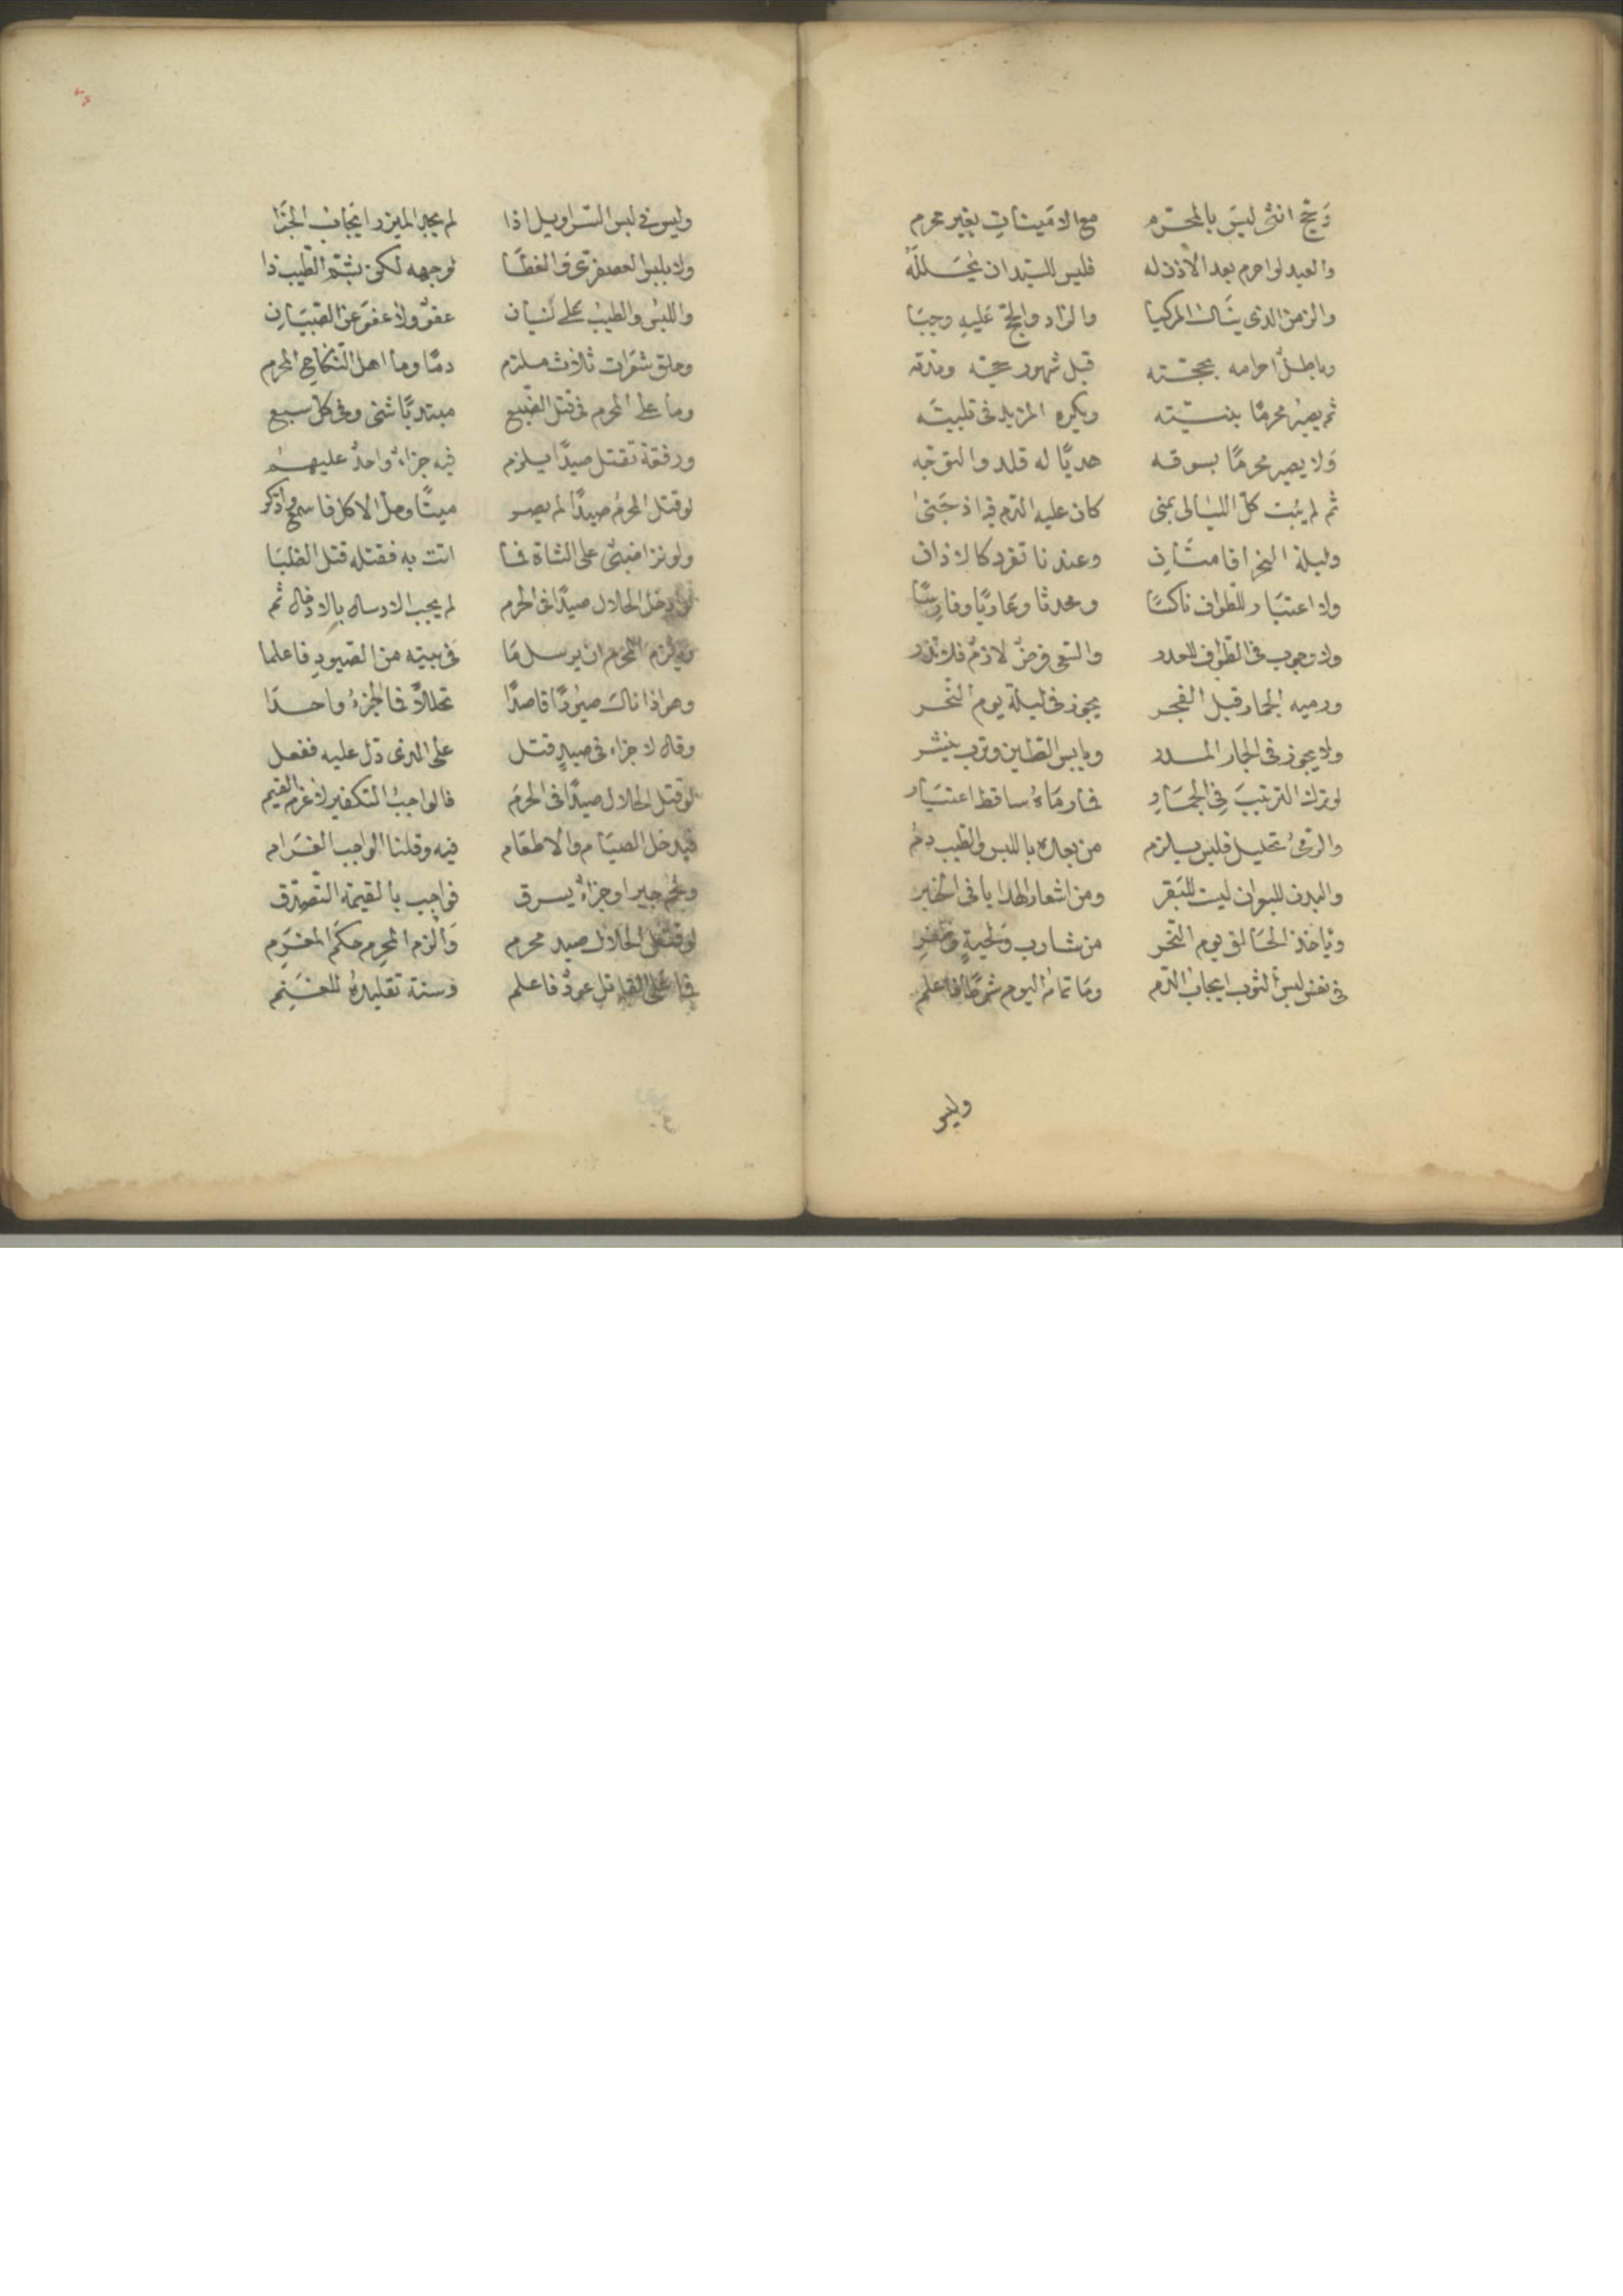 وَحج انثى ليسَ بالمحترم مع الامَينات بغير محرم
والعبد لو احرم بعد الاذن له فليس للسيد ان يحَللَهُ
والزمن الذى ينال المركبا والزاد والحج عَليه وجبَا
وباطل احرامه بحجته قبل شهور حجه
ثم يصيُر محرمًا بنيته ويكره المزيد فى تلبيته
وَلا يصير محرمًا بسوقه هديًا له قلد والتوجه
ثم لم يبت كل الليالى بمنى كان عليه الدم فيه اذ جَنىٰ
وليلة النحر اقامتان وعندنا تفرد كالاذان
ولا اعتبَار للطواف ناكسًا ومحدثا وعاريًا وفارسًا
ولا وجوب فى الطواف للصدر والسعى فرضٌ لازمٌ فلا تذر
ورميه الجمار قبل الفجر يجوز فى ليلة يوم النحر
ولا يجوز فى الجمار المدر ويابس الطين وترب ينشر
لو ترك الترتيبَ فِى الجمَارِ فما رمَاهُ ساقط اعتبَار
والرمىُ تحليل فليس يلزم من بعده باللبس والطيب دمُ
والبدن للبعران ليست للبَقر ومن اشعار الهدايا فى الخبر
وياخذ الحَالق يوم النحر من شارب وَلحيةٍ وظفرِ
فى بعض لبس الثوب ايجاب الدم ومَا تمامُ اليوم شرطًا فاعلم
وليس
وليس فى لبس السراويل اذا لم يجد الميزر ايجَاب الجزَا
ولا بلبس العصفرىّ والغطَا لوجهه لكن بشمّ الطيب ذا
واللبسُ والطيبُ علَى نسيان عفوٌ ولا عفوَ عن الصبيَان
وحلق شعرَات ثلاث ملزم دمًا وما اهل النكاح المحرم
وما على المحرم فى قتل الضبع مبتديًا شئى وفى كل سبع
ورفقة تقتل صيدًا يلزم فيه جزاءٌ واحدٌ عليهمُ
لو قتل المحرمُ صيدًا لم يصر ميتًا وحلّ الاكل فاسمع واذكر
ولو نزا ضبىٌ على الشاة فما اتت به فقتله قتل الظبَا
لو دخل الحلال صيدًا فى الحرم لم يجب الارسال بالادخال ثم
ويلزم المحرم ان يرسل مَا فى بيته من الصيودِ فاعلما
وهو اذا صيُودًا قاصدًا تحللاً فالجزءُ واحدًا
وقال لا جزاء فى صيدٍ قتل على الذى دَل عليه ففعل
لو قتل الحلال صيدًا فى الحرَم فالواجبُ التكفير لا غرم القيم
فيدخل الصيَام والاطعَام فيه وقلنا الواجب الغَرام
ولحم جبر او جزاءٍ يسرق فواجب بالقيمة التصدّق
لو قتل الحلال صيد محرم وَالزم المحرم حكمَ المغرَم
فما عَلى القاتل عودٌ فاعلم وسنة تقليدهُ للغنَم